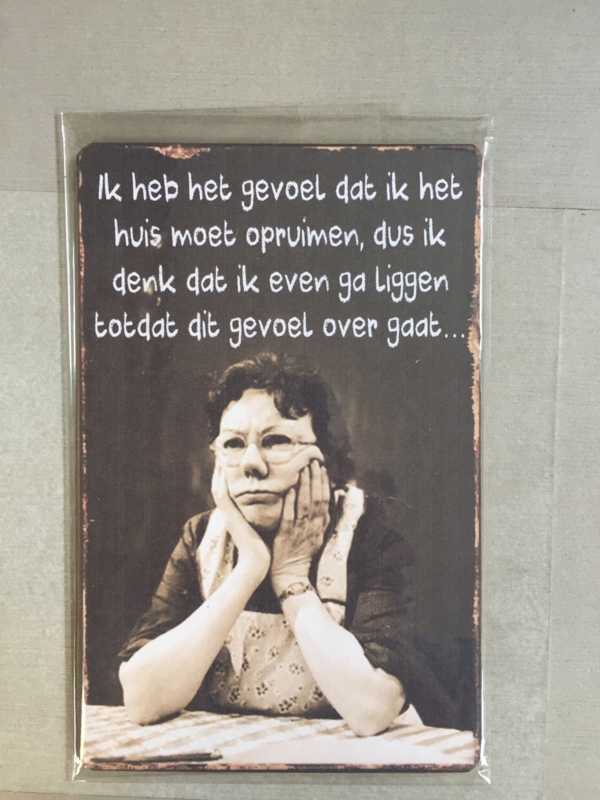 Ik heb het gevoel dat ik het
huis moet opruimen, dus ik
denk dat ik even ga liggen
totdat dit gevoel over gaat...